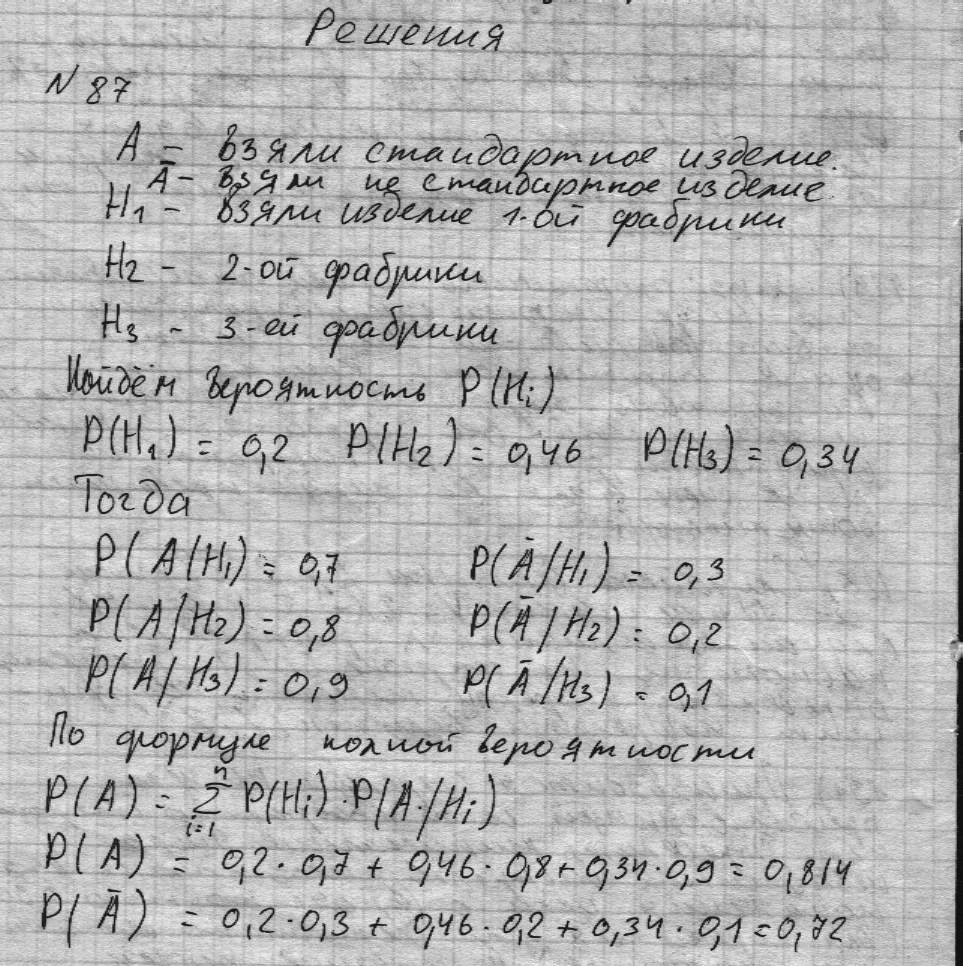 Решения
N 87
A – взяли стандартное изделие.
Ā – взяли не стандартное изделие.
H₁ – взяли изделие 1-ой фабрики
H₂ – 2-ой фабрики
H₃ – 3-ей фабрики
Найдём вероятность P(Hᵢ)
P(H₁) = 0,2 P(H₂) = 0,46 P(H₃) = 0,34
Тогда
P(A/H₁) = 0,7 P(Ā/H₁) = 0,3
P(A/H₂) = 0,8 P(Ā/H₂) = 0,2
P(A/H₃) = 0,9 P(Ā/H₃) = 0,1
По формуле полной вероятности
P(A) = ∑ⁿᵢ₌₁ P(Hᵢ)·P(A/Hᵢ)
P(A) = 0,2·0,7 + 0,46·0,8 + 0,34·0,9 = 0,814
P(Ā) = 0,2·0,3 + 0,46·0,2 + 0,34·0,1 = 0,72